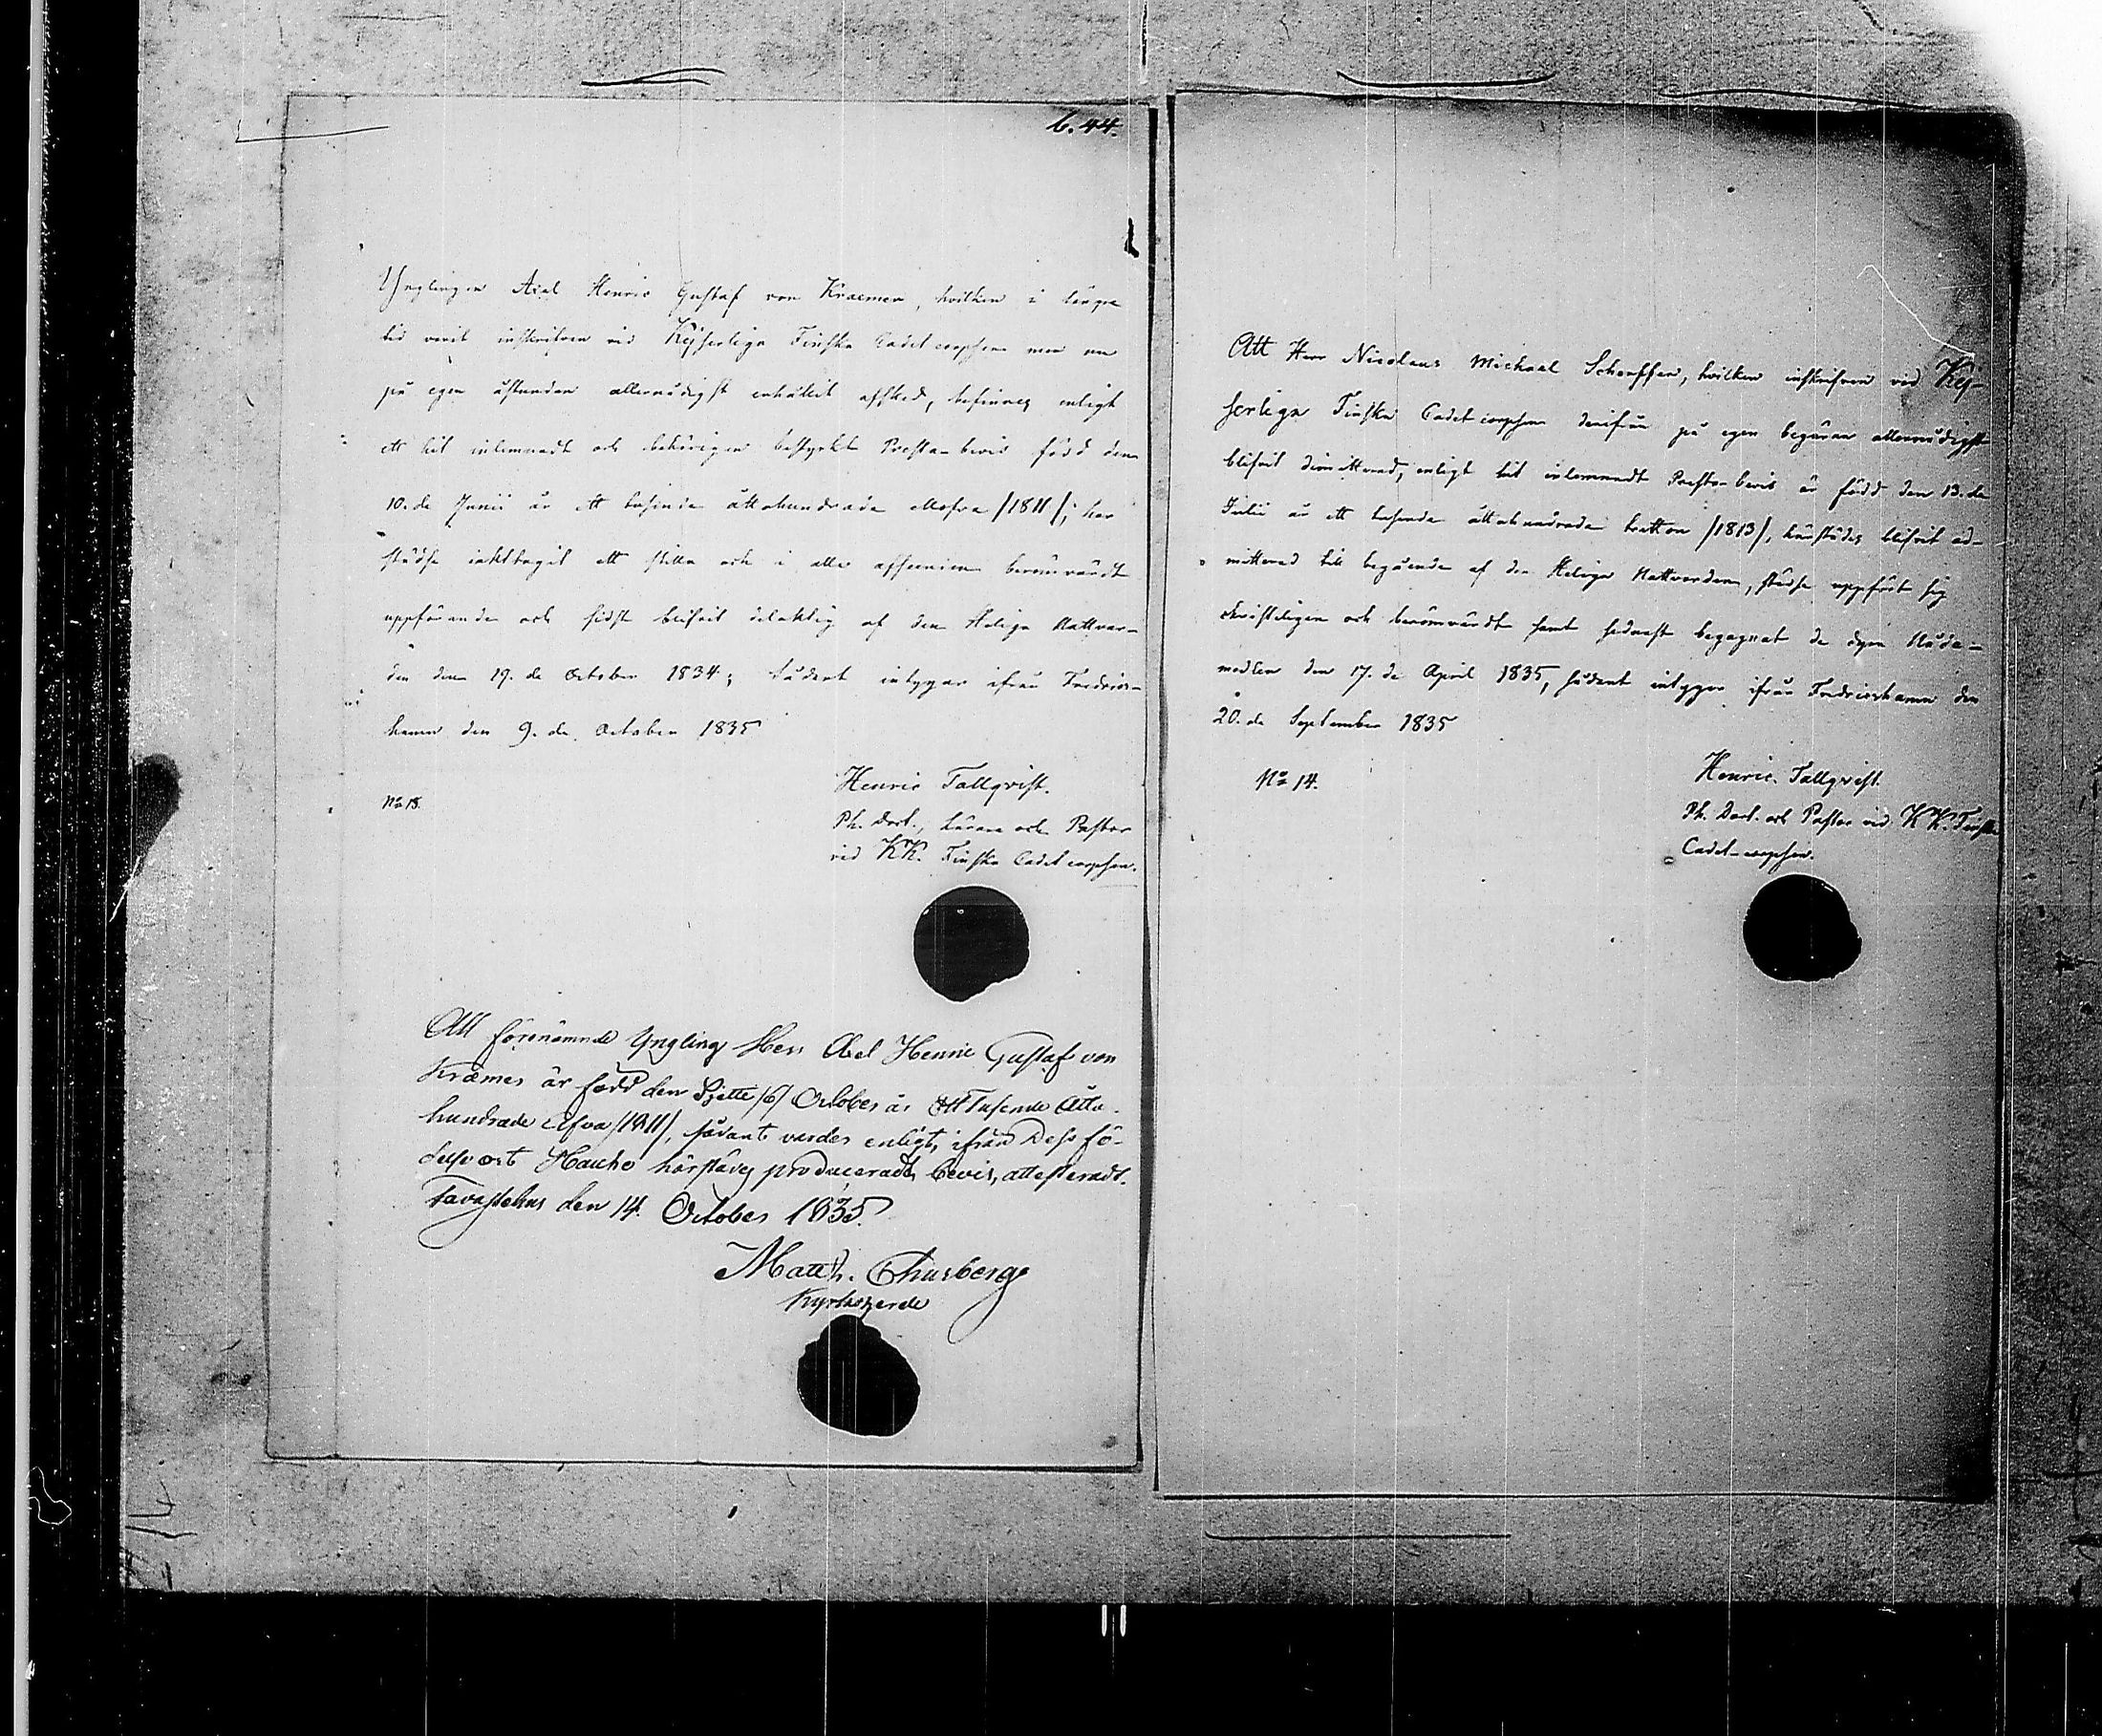 b. 44.
Ynglingen Axel Henric Gustaf von Kraemer, hvilken i längre
tid varit inskrifven vid Kejserliga Finska Cadet corpsen men nu
på egen åstundan allernådigst erhållit afsked, befinnes enligt
ett hit inlemnadt och behörigen bestyrkt Prestabevis född den
10.de Junii år ett tusende åttahundrade ellofva /1811/; har
städse iakttagit ett stilla och i allo afseenden berömvärdt
uppförande och sidst blifvit delaktig af den Heliga Nattvar-
den den 19.de October 1834; sådant intygar ifrån Fredrics-
hamn den 9.de October 1835
No 18.
Henric Tallqvist.
Ph. Doct., Lärare och Pastor
vid KK. Finska Cadet corpsen.
Att förenämnde Yngling Herr Axel Henric Gustaf von
Kræmer är född den Sjette /6/ October år Ett Tusende Åtta-
hundrade Elfva /1811/, sådant varder enligt, ifrån Dess fö-
delseort Haucho härstädes produceradt, bevis, attesteradt.
Tavastehus den 14. October 1835.
Matth. Thusberg
Kyrkoherde
Att Herr Nicolaus Michael Scherffer, hvilken inskrifven vid Kej-
serliga Finska Cadet corpsen derifrån på egen begäran allernådigst
blifvit dimitterad, enligt hit inlemnadt Prestabevis är född den 13.de
Julii år ett tusende åttahundrade tretton /1813/, härstädes blifvit ad-
mitterad till begående af den Heliga Nattvarden, städse uppfört sig
christeligen och berömvärdt samt sednast begagnat de dyra Nåde-
medlen den 17.de April 1835, sådant intygar ifrån Fredricshamn den
20.de September 1835
No 14.
Henric Tallqvist.
Ph. Doct. och Pastor vid KK. Finska
Cadet-corpsen.